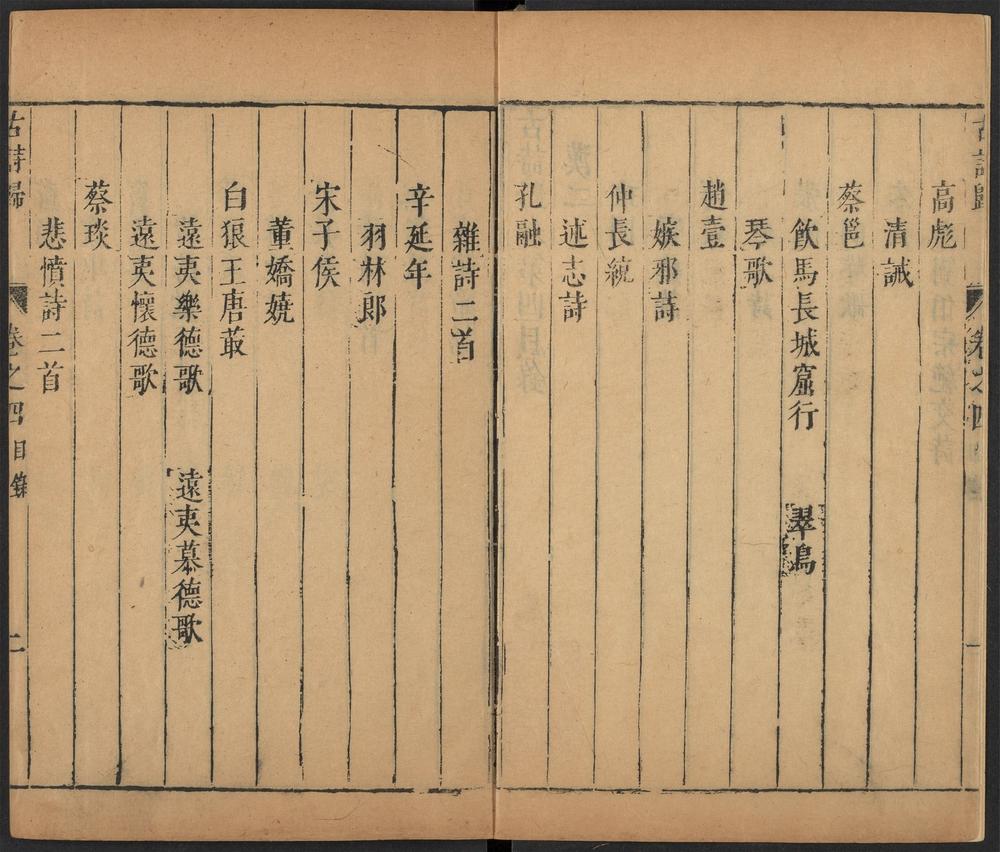 古詩歸 卷之四 一
高彪
清誡
蔡邕
飲馬長城窟行 翠鳥
琴歌
趙壹
嫉邪詩
仲長統
述志詩
孔融
雜詩二首
辛延年
羽林郎
宋子侯
董嬌嬈
白狼王唐菆
遠夷樂德歌 遠夷慕德歌
遠夷懷德歌
蔡琰
悲憤詩二首
古詩歸 卷之四 目錄 二